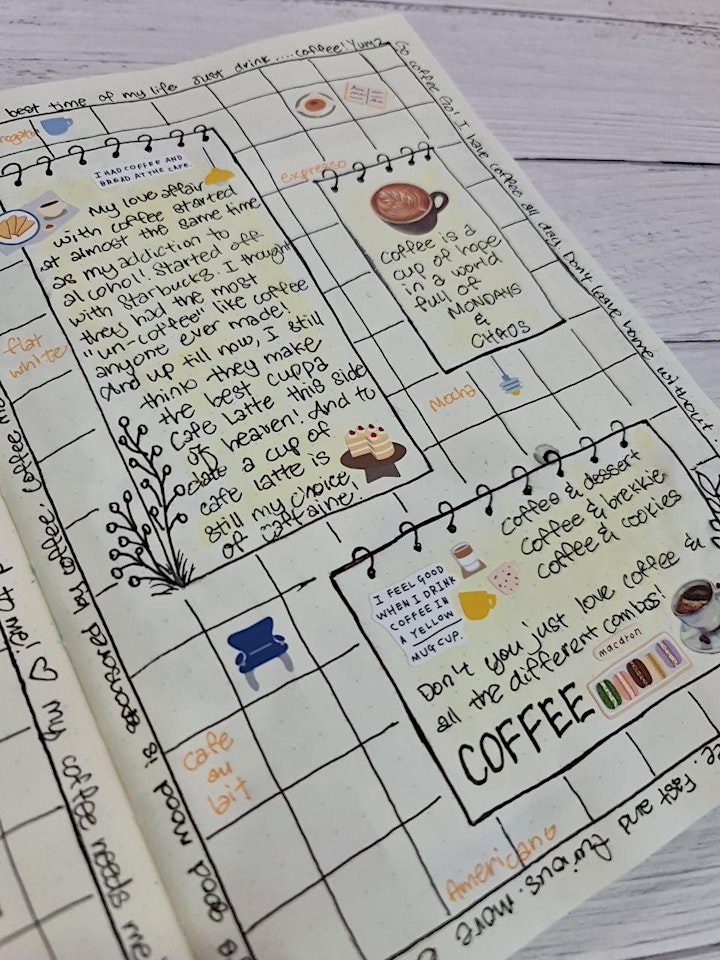 best time of my life just drink....coffee! Yumz
Go coffee Go! I have coffee all day. Don't leave home without
I HAD COFFEE AND
BREAD AT THE CAFE.
My love affair
with coffee started
at almost the same time
as my addiction to
alcohol! Started off
with Starbucks. I thought
they had the most
"un-coffee" like coffee
anyone ever made!
And up till now, I still
think they make
the best cuppa
Cafe Latte this side
of heaven! And to
date a cup of
cafe latte is
still my choice
of caffaine.
expresso
coffee is a
cup of hope
in a world
full of
MONDAYS
&
CHAOS
flat
white
Mocha
coffee & dessert
coffee & brekkie
coffee & cookies
I FEEL GOOD
WHEN I DRINK
COFFEE IN
A YELLOW
MUG CUP.
Don't you just love coffee &
all the different combos!
macaron
COFFEE
Cafe
au
lait
Americano
Fast and furious. more
good mood is sponsored by coffee. Coffee
my coffee needs me